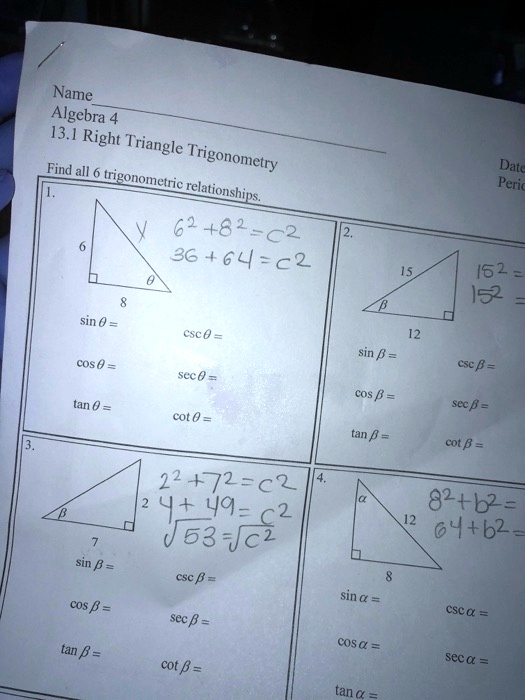 Name
Algebra 4
13.1 Right Triangle Trigonometry
Date
Find all 6 trigonometric relationships.
1.
6
8
θ
y 6² + 8² = c²
36 + 64 = c²
sin θ =
csc θ =
cos θ =
sec θ =
tan θ =
cot θ =
2.
15
β
12
15² =
15² =
sin β =
csc β =
cos β =
sec β =
tan β =
cot β =
3.
2
β
7
2² + 7² = c²
4 + 49 = c²
√53 = √c²
sin β =
csc β =
cos β =
sec β =
tan β =
cot β =
4.
α
12
8
8² + b² =
64 + b² =
sin α =
csc α =
cos α =
sec α =
tan α =